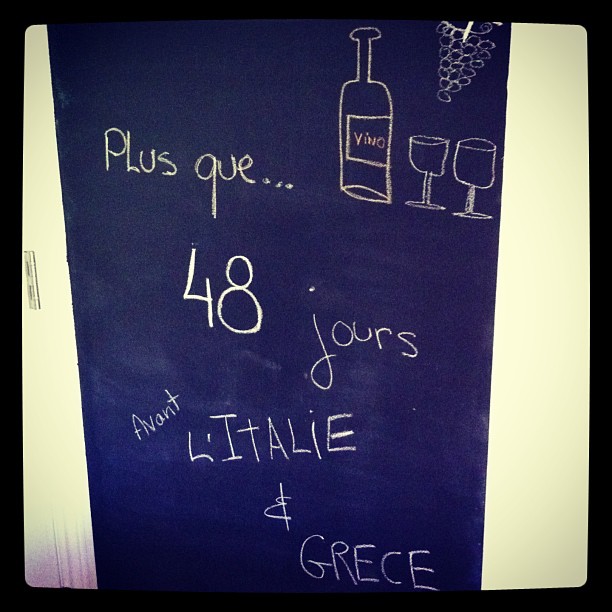 Vino
Plus que...
48
jours
Avant
L'ITALiE
&
GRECE